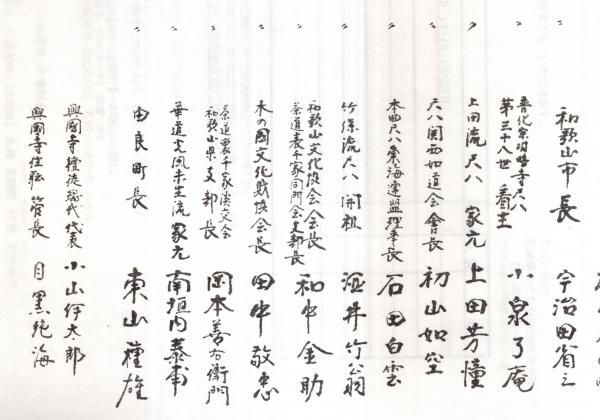 〃 和歌山市長 宇治田省三
〃 普化宗明暗寺尺八 第三十八世 看主 小泉了庵
〃 上田流尺八 家元 上田芳憧
〃 尺八関西如道会會長 初山如空
〃 本曲尺八東海連盟理事長 石田白雲
〃 竹保流尺八 開祖 酒井竹翁
〃 和歌山文化協会会長 茶道表千家同門会支部長 和中金助
〃 木の国文化財協会長 田中敬忠
〃 茶道裏千家淡交会 和歌山県支部長 岡本善右衛門
〃 華道光風未生流家元 南垣内泰甫
〃 由良町長 東山種雄
興國寺檀徒総代代表 小山伊太郎
興國寺住職 管長 目黒絶海